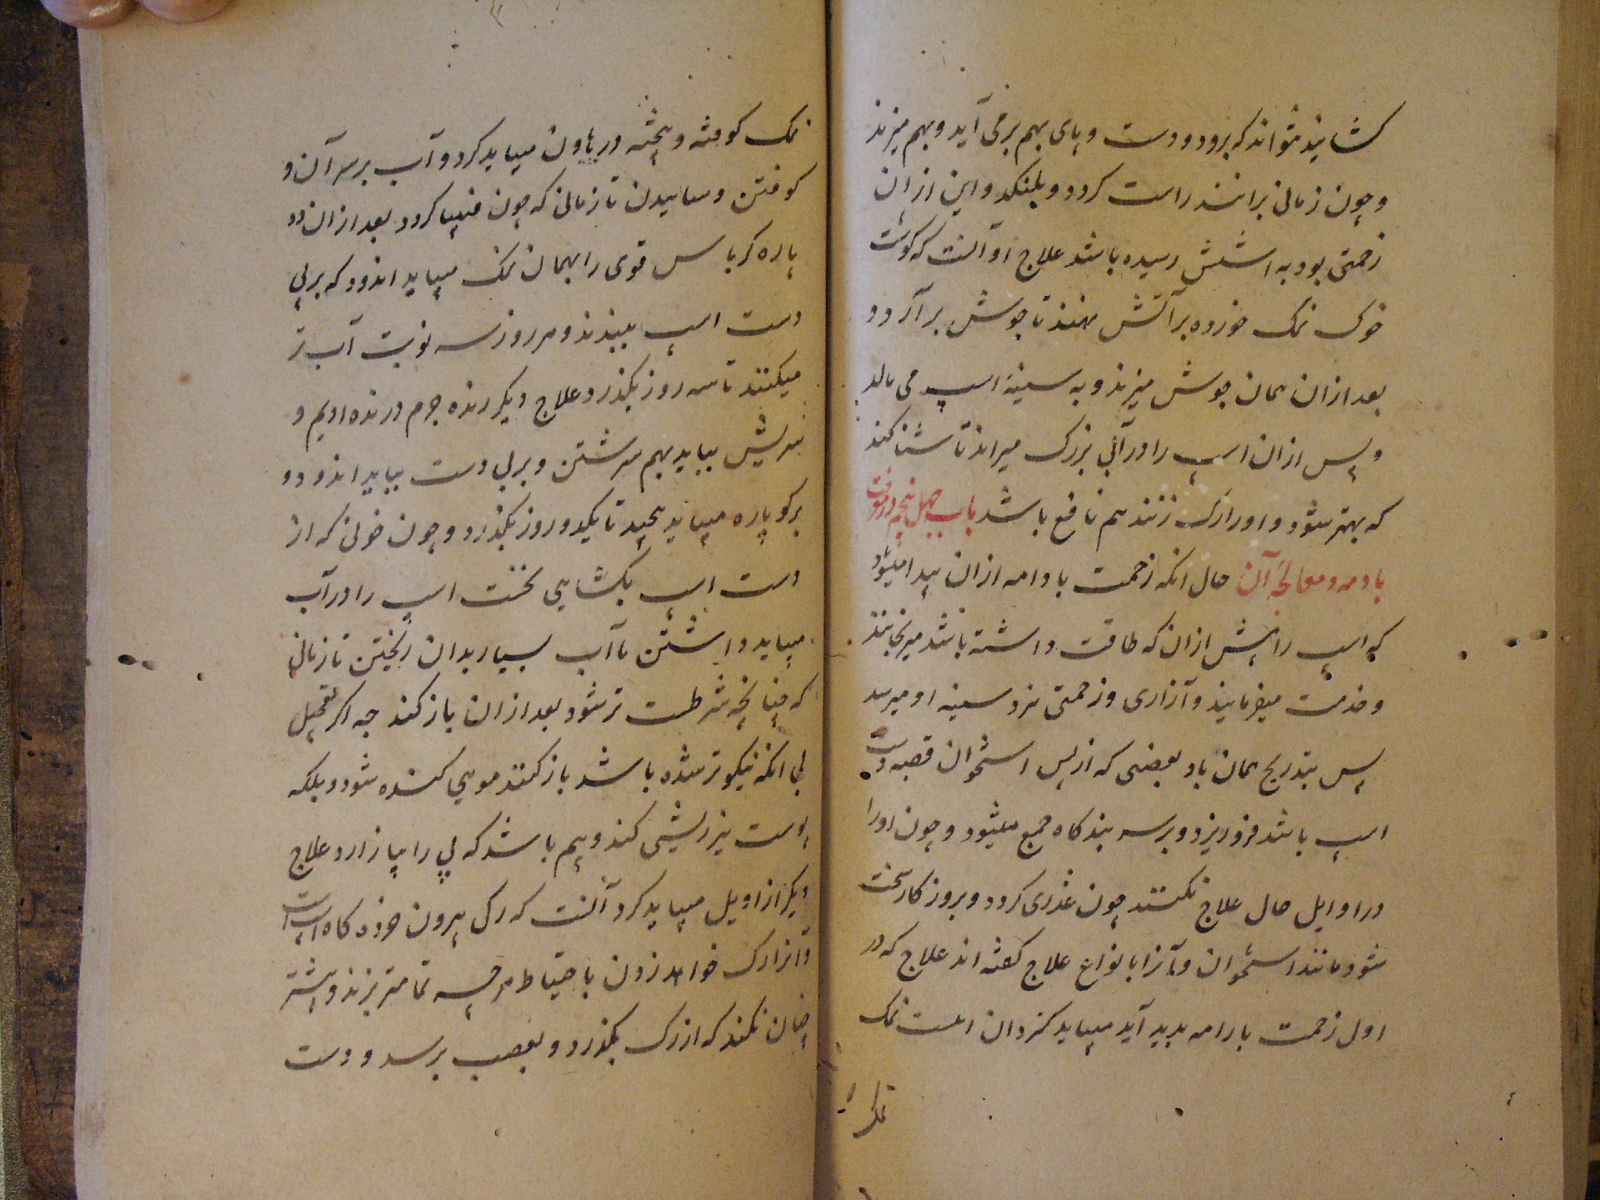 کشایند نتواند که برود و دست و پای بهم برمی آید و بهم میزند
و چون زمانی برانند راست کردد و بلنکد و این از ان
زحمتی بود به اشش رسیده باشد علاج او آنست که کوشت
خوک نمک خورده بر آتش نهند تا جوش بر آرد و
بعد ازان همان جوش میزند و به سینهٔ اسپ می مالد
و پس ازان اسپ را در آبی بزرک میراند تا شنا کند
که بهتر شود و او را رک زنند هم نافع باشد باب چهل پنجم در معرفت
بادمه و معالجهٔ آن حال انکه زحمت بادامه ازان پیدا میشود
که اسپ را پیش ازان که طاقت داشته باشد میرنجانند
و خدمت میفرمایند و آزاری و زحمتی نزد سینه او میرسد
پس بتدریج همان باد بعضی که از پس استخوان قصبه دست
اسپ باشد فرو ریزد و بر سه بندکاه جمع میشود و چون او را
در اوایل حال علاج نکنند چون غدری کردد و بروزکار سخت
شود مانند استخوان و آنرا بانواع علاج کفته اند علاج که در
اول زحمت بارامه پدید آید میباید کردان است نمک
نمک
نمک کوفته و پخته در هاون میباید کرد و آب بر سر آن و
کوفتن و ساییدن تا زمانی که چون فتیپا کردد بعد ازان دو
پاره کرباس قوی را بهمان نمک میباید اندود که بر پی
دست اسپ ببندند و هر روز سه نوبت آب تر
میکنند تا سه روز بکذرد و علاج دیکر رنده جرم و رنده ادیم و
سریش بباید بهم سرشتن و بر پی دست بباید اندود و
بر کو پاره میباید پیچید تا یکدو روز بکذرد و چون خونی که از
دست اسپ بکشایی نخست اسپ را در آب
میباید داشتن تا آب بسیار بدان ریختن تا زمانی
که چنانچه شرطست تر شود بعد ازان باز کند چه اکر تعجیل
پی انکه نیکو تر شده باشد باز کنند موی کنده شود و بلکه
پوست نیز ریشی کند و بیم باشد که پی را بیازارد علاج
دیکر از اویل میباید کرد آنست که رکی بیرون خردکاه اسپ است
و آنرا رک خواهد زدن باحتیاط هر چه تمامتر بزند و نیشتر
چنان نکند که از رک بکذرد و بعصب برسد و دست